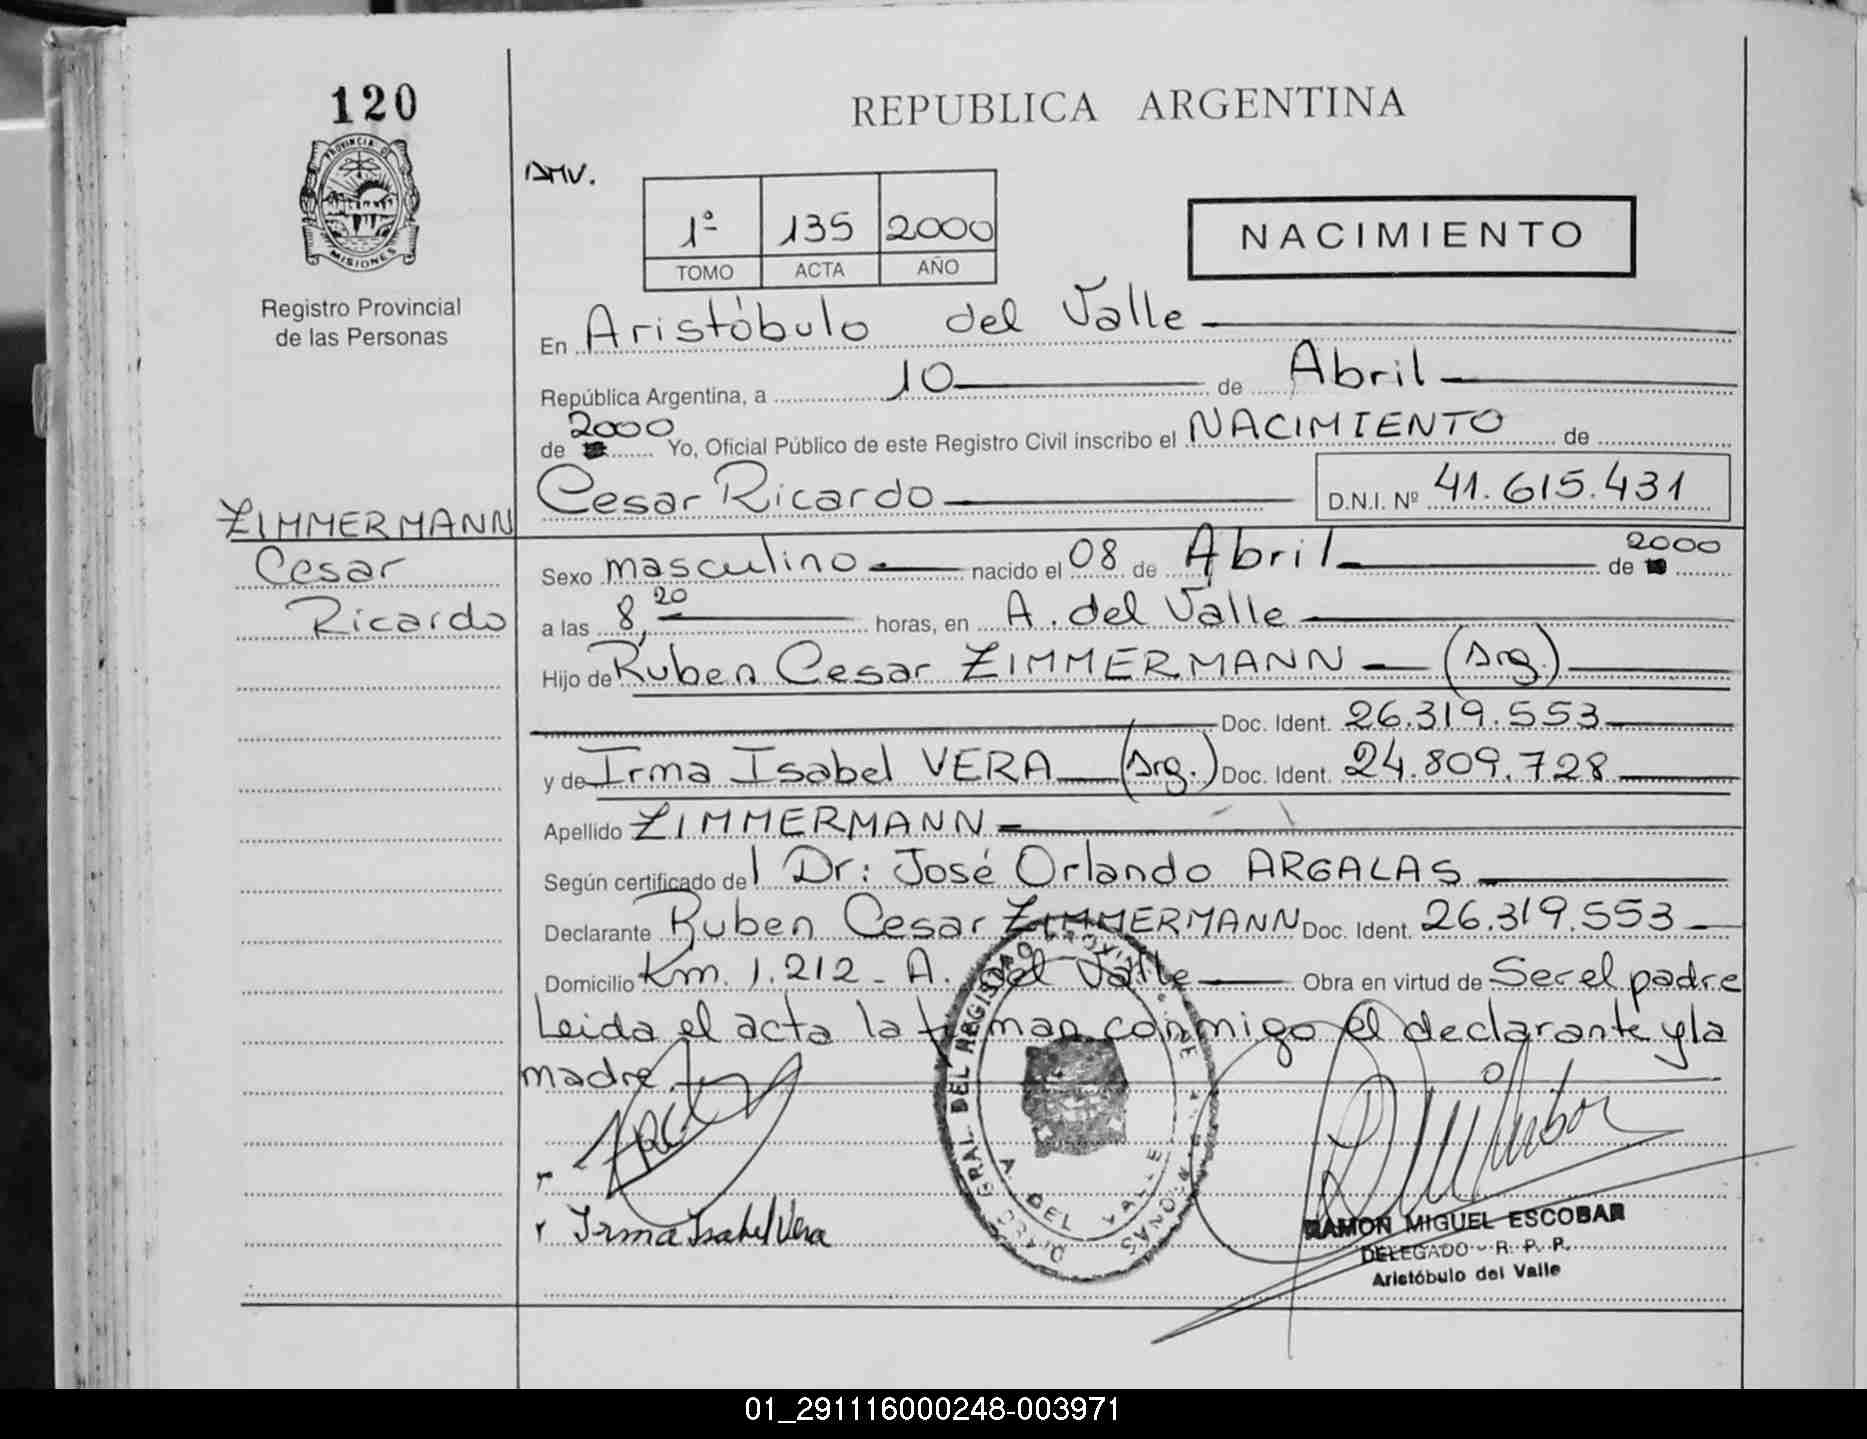 120
REPUBLICA ARGENTINA
PROVINCIA DE MISIONES
Registro Provincial
de las Personas
1º 135 2000
TOMO ACTA AÑO
NACIMIENTO
En Aristóbulo del Valle
República Argentina, a 10 de Abril
de 2000 Yo, Oficial Público de este Registro Civil inscribo el NACIMIENTO de
Cesar Ricardo D.N.I. Nº 41.615.431
ZIMMERMANN
Cesar
Ricardo
Sexo masculino nacido el 08 de Abril de 2000
a las 8,20 horas, en A. del Valle
Hijo de Ruben Cesar ZIMMERMANN (Arg.)
Doc. Ident. 26.319.553
y de Irma Isabel VERA (Arg.) Doc. Ident. 24.809.728
Apellido ZIMMERMANN
Según certificado del Dr: José Orlando ARGALAS
Declarante Ruben Cesar ZIMMERMANN Doc. Ident. 26.319.553
Domicilio Km. 1.212 - A. del Valle Obra en virtud de Ser el padre
Leida el acta la firman conmigo el declarante y la
madre
Irma Isabel Vera
A. DEL VALLE
RAMON MIGUEL ESCOBAR
DELEGADO - R. P. P.
Aristóbulo del Valle
01_291116000248-003971